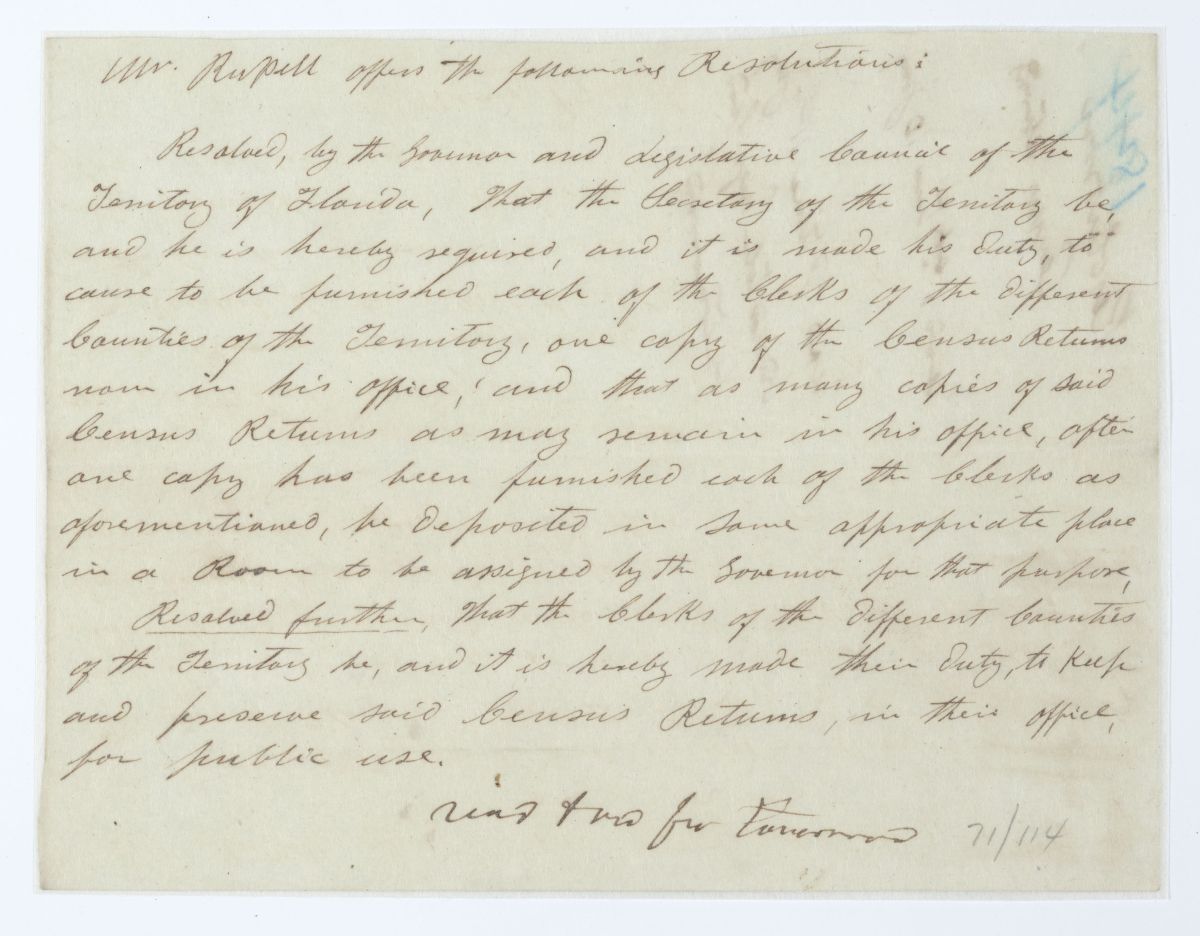 Mr. Russell offers the following Resolutions:
Resolved, by the Governor and Legislative Council of the
Territory of Florida, That the Secretary of the Territory be,
and he is hereby required, and it is made his duty, to
cause to be furnished each of the Clerks of the different
Counties of the Territory, one copy of the Census Returns
now in his office; and that as many copies of said
Census Returns as may remain in his office, after
one copy has been furnished each of the Clerks as
aforementioned, be deposited in some appropriate place
in a Room to be assigned by the Governor for that purpose,
Resolved further, That the Clerks of the different Counties
of the Territory be, and it is hereby made their duty, to Keep
and preserve said Census Returns, in their office,
for public use.
read & ord for Tomorrow
71/114